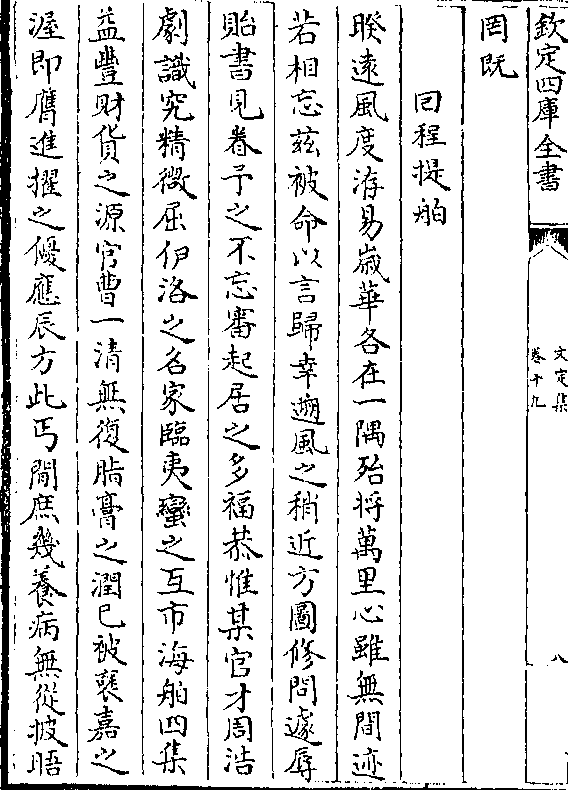 欽定四庫全書
文定集
卷十九
八
罔既
回程提舶
暌逺風度洊易嵗華各在一隅殆將萬里心雖無間迹
若相忘兹被命以言歸幸遡風之稍近方圖修問遽辱
貽書見眷予之不忘審起居之多福恭惟某官才周浩
劇識究精微屈伊洛之名家臨夷蠻之互市海舶四集
益豐財貨之源官曹一清無復脂膏之潤已被褒嘉之
渥即膺進擢之優應辰方此丐閒庶幾養病無從披晤